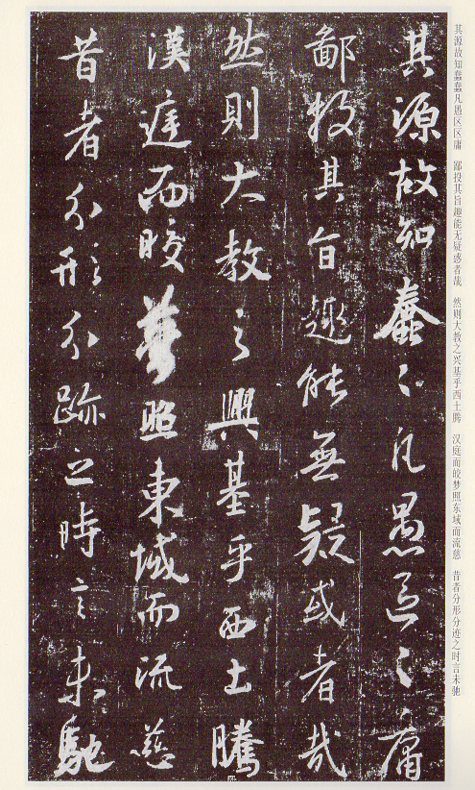 其源故知蠢〻凡愚區〻庸
鄙投其旨趣能無疑或者哉
然則大教之興基乎西土騰
漢庭而皎夢照東域而流慈
昔者分形分跡之時言未馳
其源故知蠢蠢凡愚区区庸　鄙投其旨趣能无疑惑者哉　然则大教之兴基乎西土腾　汉庭而皎梦照东域而流慈　昔者分形分迹之时言未驰